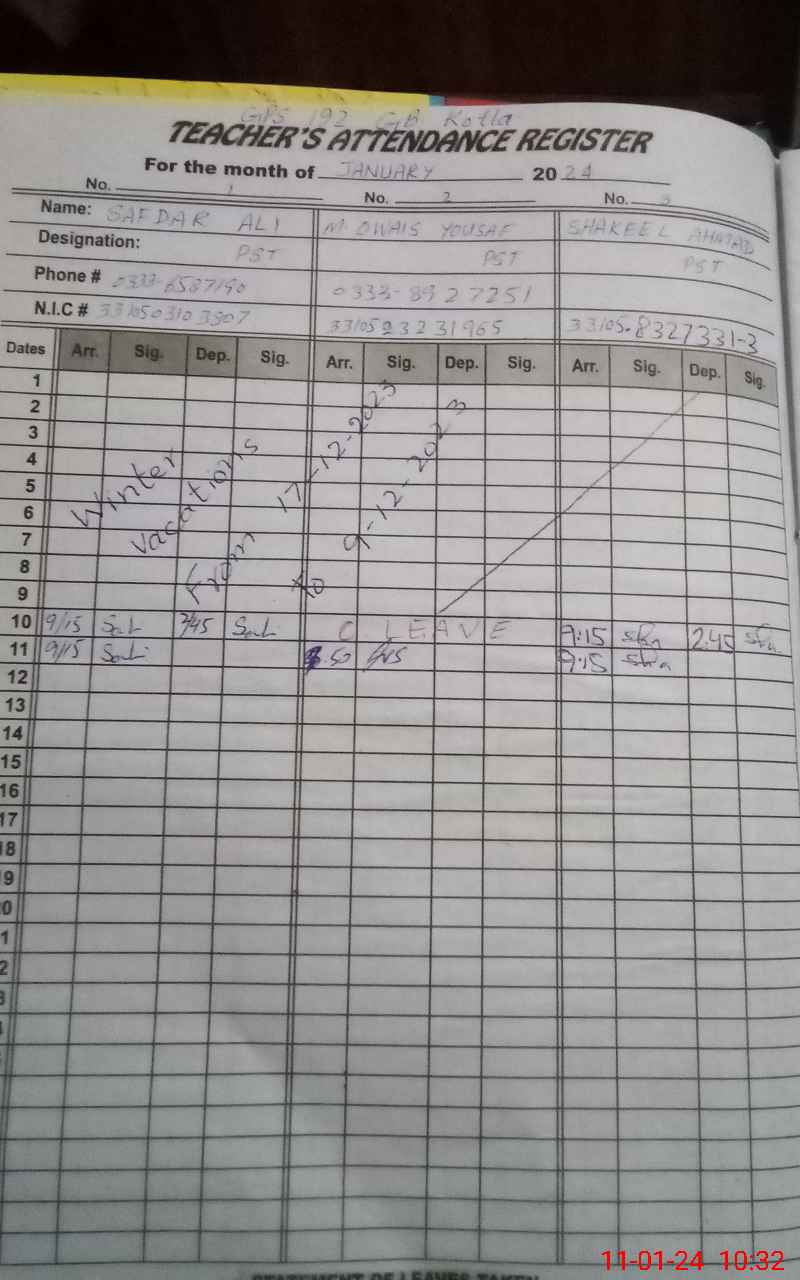 GPS 192 GB Kotla
TEACHER'S ATTENDANCE REGISTER
For the month of JANUARY 2024
No. 1 No. 2 No. 3
Name: SAFDAR ALI M. OWAIS YOUSAF SHAKEEL AHMAD
Designation: PST PST PST
Phone # 0333-6587190 0333-8927251
N.I.C # 3310503103907 3310523231965 33105-8327331-3
Dates Arr. Sig. Dep. Sig. Arr. Sig. Dep. Sig. Arr. Sig. Dep. Sig.
1
2
3
4
5
6
7
8
9
Winter
vacations
From 17-12-2023
to 9-12-2023
10 9/15 2/45 C LEAVE 9:15 2:45
11 9/15 8.50 9:15
12
13
14
15
16
17
18
9
0
1
2
3
STATEMENT OF LEAVES TAKEN
11-01-24 10:32